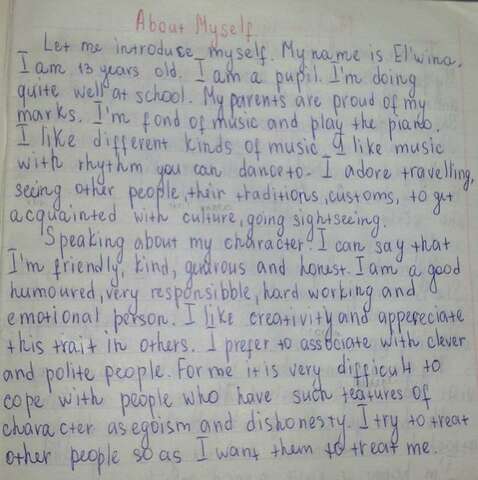 About Myself
Let me introduce myself. My name is El'wina.
I am 13 years old. I am a pupil. I'm doing
quite well at school. My parents are proud of my
marks. I'm fond of music and play the piano.
I like different kinds of music. I like music
with rhythm you can dance to. I adore travelling,
seeing other people, their traditions, customs, to get
acquainted with culture, going sightseeing.
Speaking about my character. I can say that
I'm friendly, kind, generous and honest. I am a good
humoured, very responsibble, hard working and
emotional person. I like creativity and appereciate
this trait in others. I prefer to associate with clever
and polite people. For me it is very difficult to
cope with people who have such features of
character as egoism and dishonesty. I try to treat
other people so as I want them to treat me.